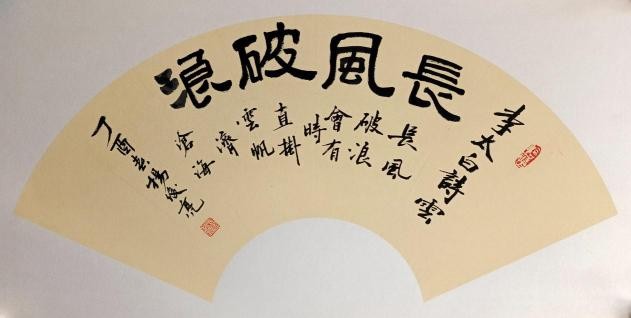 長風破浪
李太白詩雲
長風
破浪
會有
時
直掛
雲帆
濟
滄海
丁酉春楊俊亮